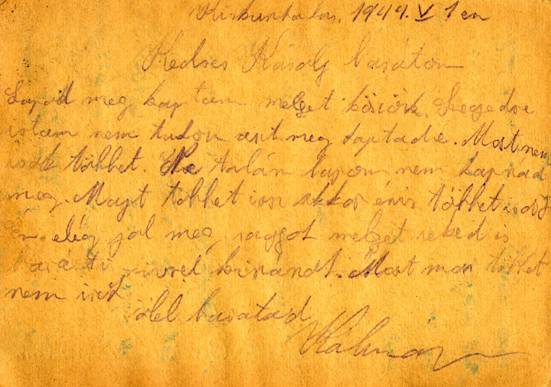 Kiskunhalas, 1944. V 1 én
Kedves Károly barátom
Lapod meg kaptam melyet köszönök. Szegedre
irtam nem tudom azt meg kaptad e. Most nem
irok többet. Ha talán lapom nem kapnád
meg. Majt többet irsz akkor én is többet
Én elég jol meg vagyok melyet neked is
baráti szivvel kivánok. Most mar többet
nem irok
ölel baratod
Kálmán